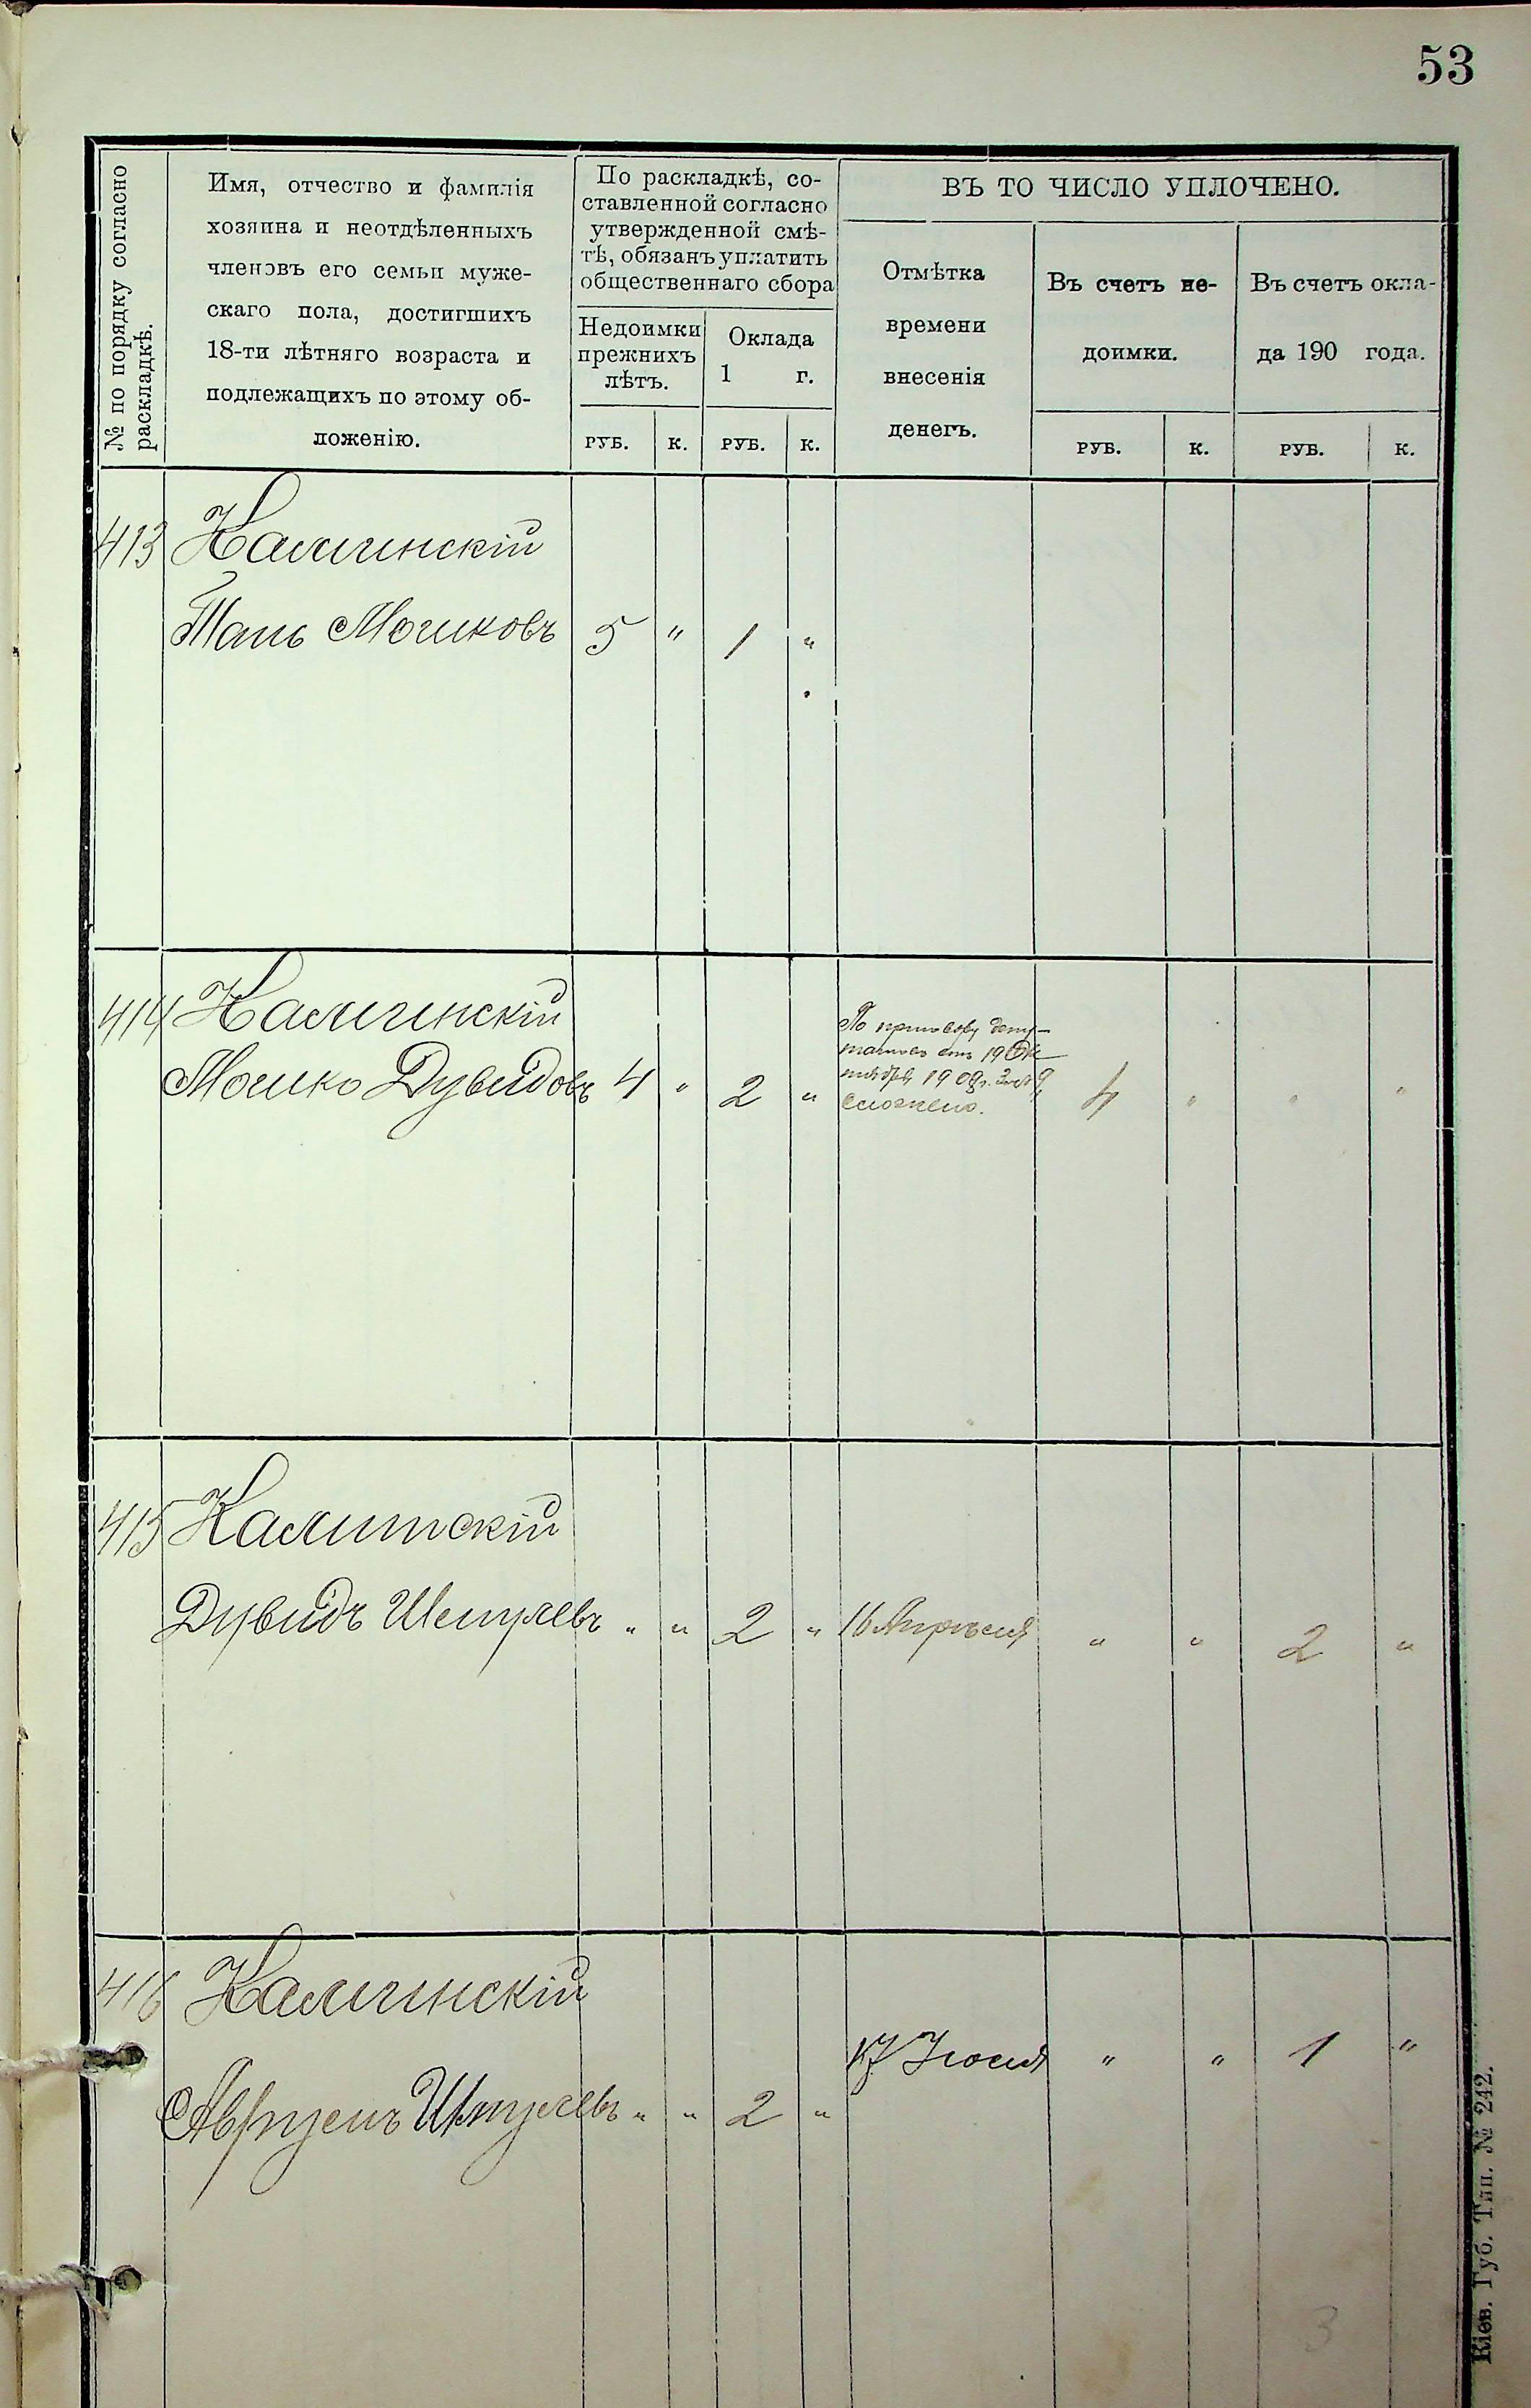 53
№ по порядку согласно
раскладкѣ.
Имя, отчество и фамилія
хозяина и неотдѣленныхъ
членовъ его семьи муже-
скаго пола, достигшихъ
18-ти лѣтняго возраста и
подлежащихъ по этому об-
ложенію.
По раскладкѣ, со-
ставленной согласно
утвержденной смѣ-
тѣ, обязанъ уплатить
общественнаго сбора
Недоимки
прежнихъ
лѣтъ.
Оклада
1 г.
ВЪ ТО ЧИСЛО УПЛОЧЕНО.
Отмѣтка
времени
внесенія
денегъ.
Въ счетъ не-
доимки.
Въ счетъ окла-
да 190 года.
РУБ. К. РУБ. К. РУБ. К. РУБ. К.
413 Калинскій
Мошковъ 5 " 1 "
414 Калинскій
Мошко Дувидовъ 4 " 2 " 4 " " "
По приговору депу-
татовъ отъ 19 Ок-
тября 1909г. за №9
сложено.
415 Калитскій
Дувидъ Шмулевъ " " 2 " 16 Апрѣля " " 2 "
416 Калинскій
17 Іюля " " 1 "
Аврумъ Шмулевъ " " 2 "
3
Кіев. Губ. Тип. № 242.